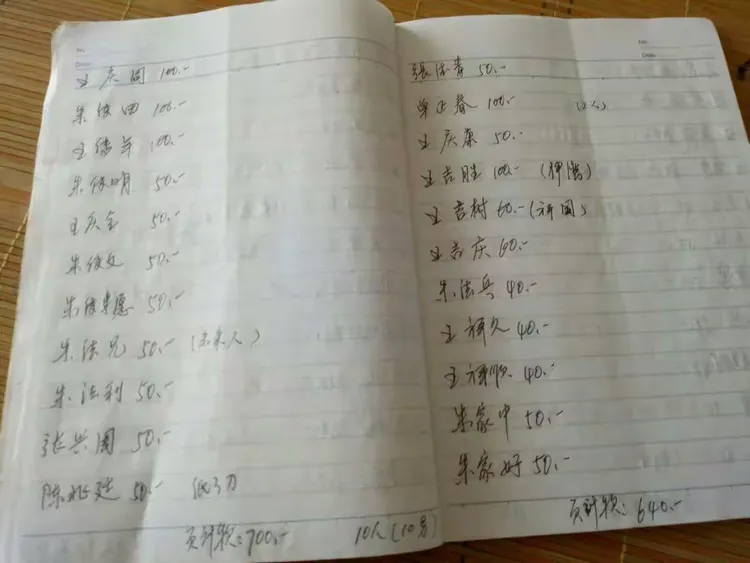 王庆闯 100.-
朱俊田 100.-
王传年 100.-
朱俊明 50.-
王庆全 50.-
朱俊文 50.-
朱俊忠 50.-
朱法兄 50.- (未来人)
朱法利 50.-
张兴国 50.-
陈 50.- 纸3刀
页计款:700.- 10人(10号)
張法青 50.-
单正春 100.- (2人)
王庆康 50.-
王吉胜 100.-
王吉树 60.-
王吉庆 60.-
朱法兵 40.-
王祥久 40.-
王祥顺 40.-
朱家中 50.-
朱家好 50.-
页计款:640.-